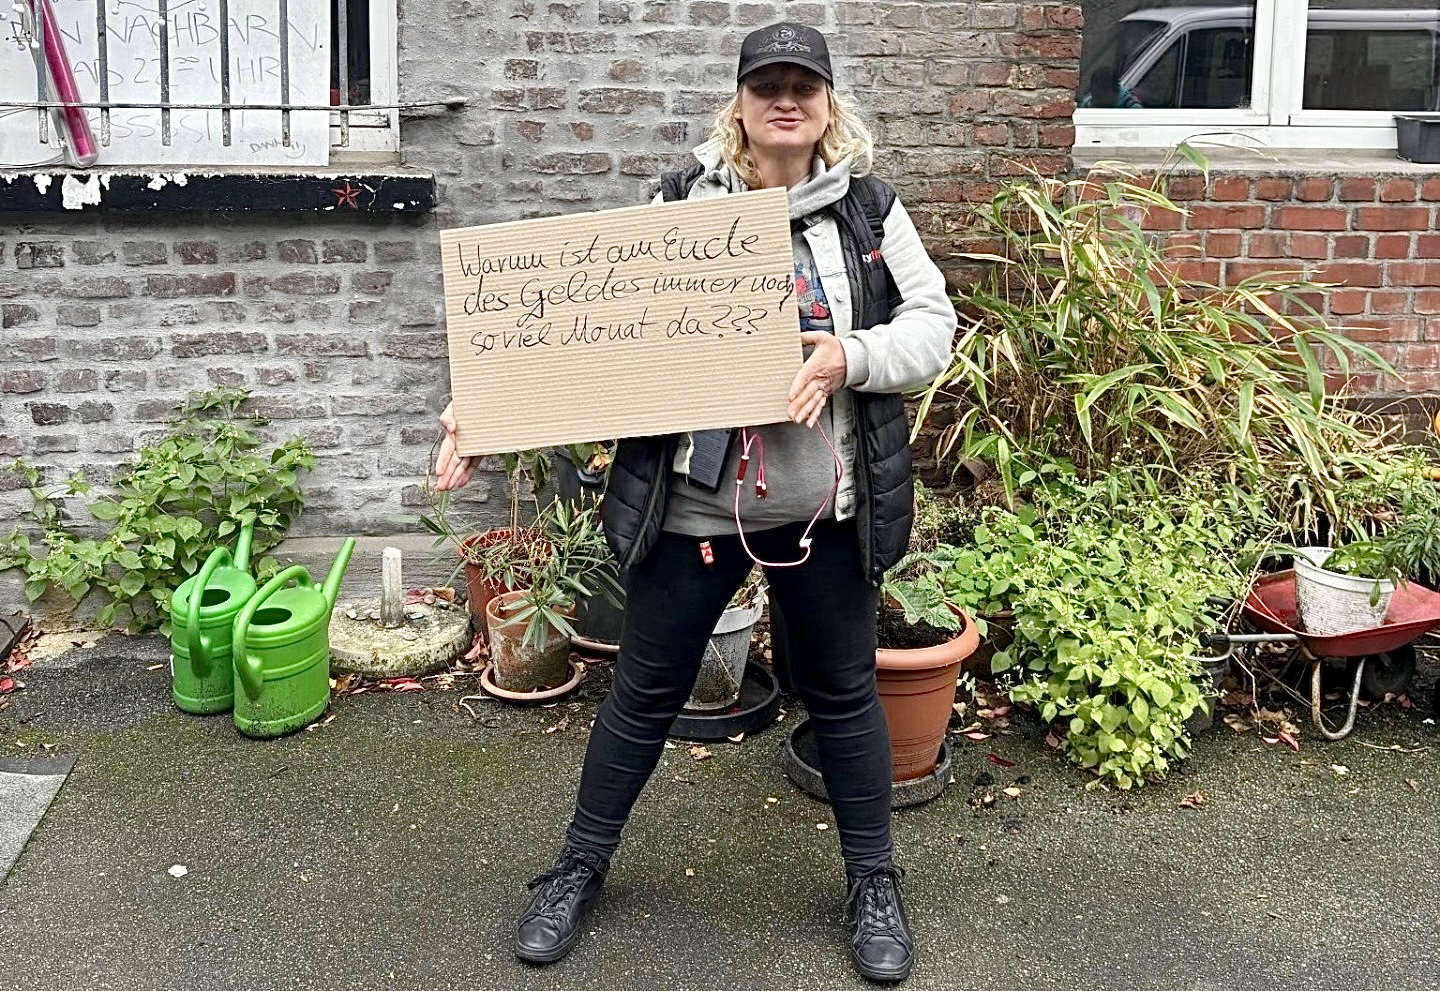 NACHBARN
AB 22⁰⁰ UHR
DANKE!!
Warum ist am Ende
des Geldes immer noch
so viel Monat da???